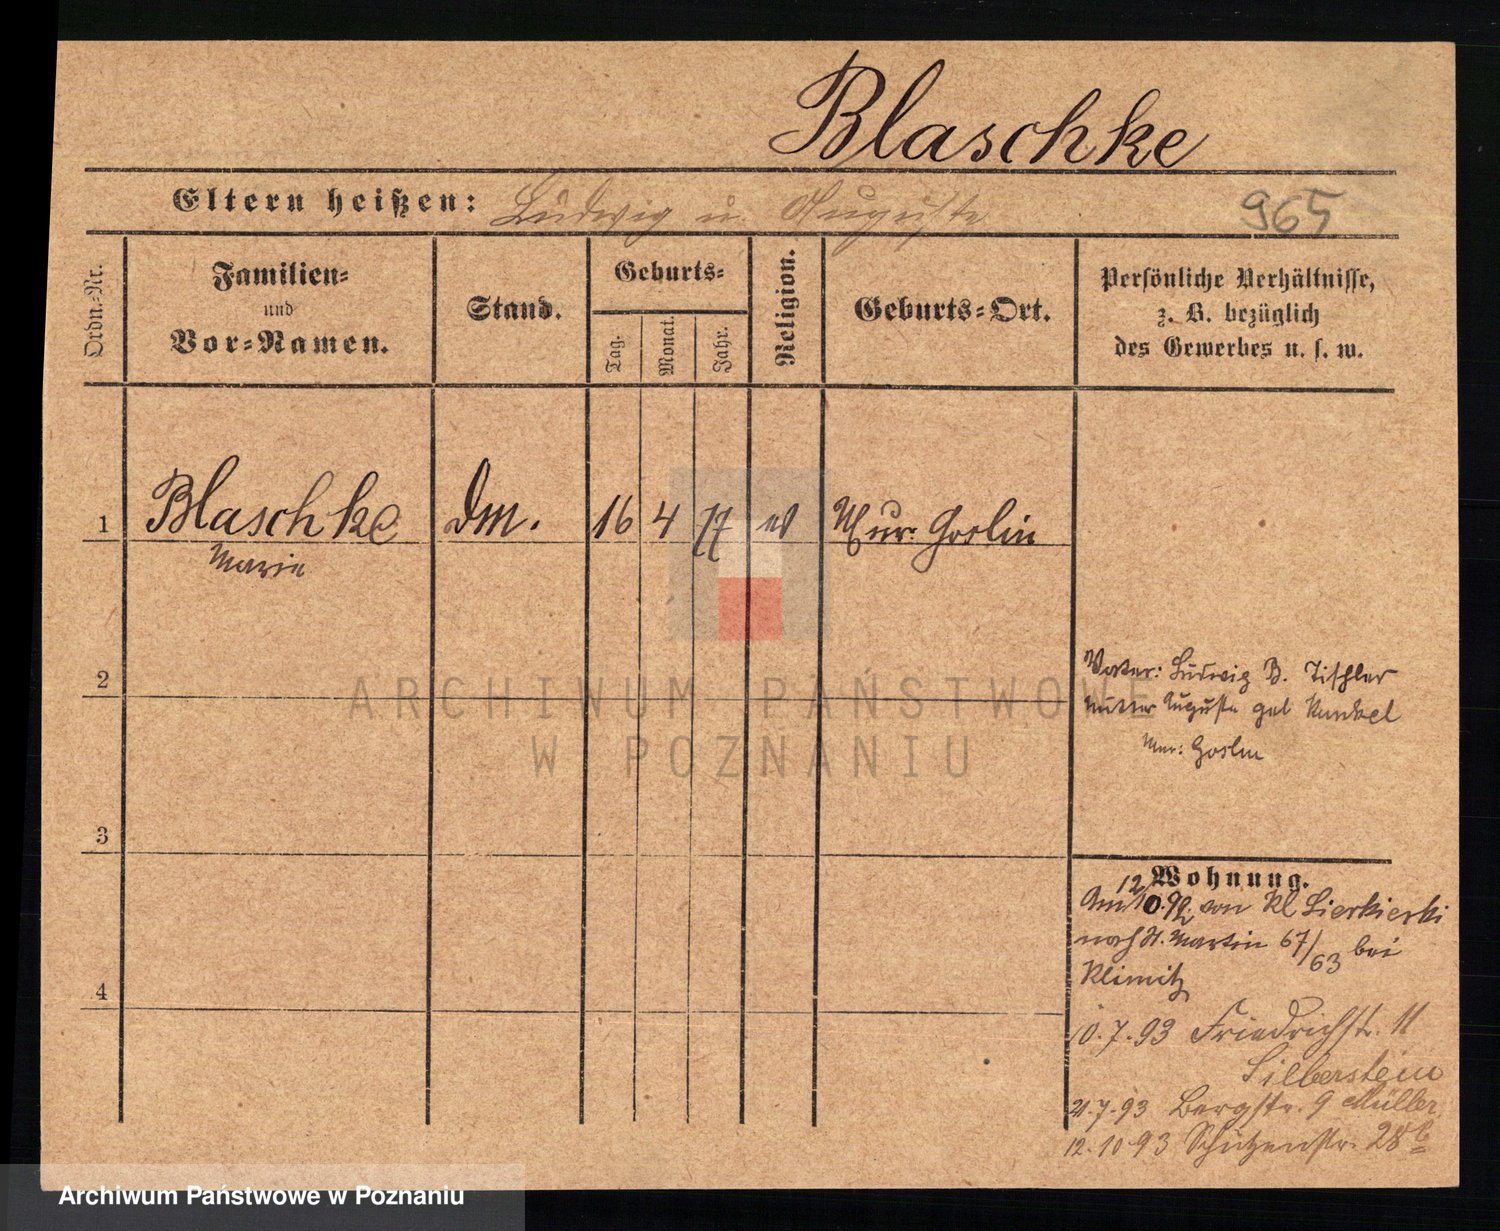 Blaschke
Eltern heißen: Ludwig u. Auguste
965
Ordn.-Nr.
Familien-
und
Vor-Namen.
Stand.
Geburts-
Tag.
Monat.
Jahr.
Religion.
Geburts-Ort.
Persönliche Verhältnisse,
z. B. bezüglich
des Gewerbes u. s. w.
1 Blaschke Dm. 16 4 77 ev Mur. Goslin
Marie
2
3
4
Vater: Ludwig B. Tischler
Mutter Auguste geb Kunkel
Mur: Goslin
Wohnung.
von Kl
nach St. Martin 67/63 bei
Klimitz
10.7.93 Friedrichstr. 11
Silberstein
21.7.93 Bergstr. 9 Müller
12.10.93 Schützenstr. 28b
ARCHIWUM PAŃSTWOWE
W POZNANIU
Archiwum Państwowe w Poznaniu